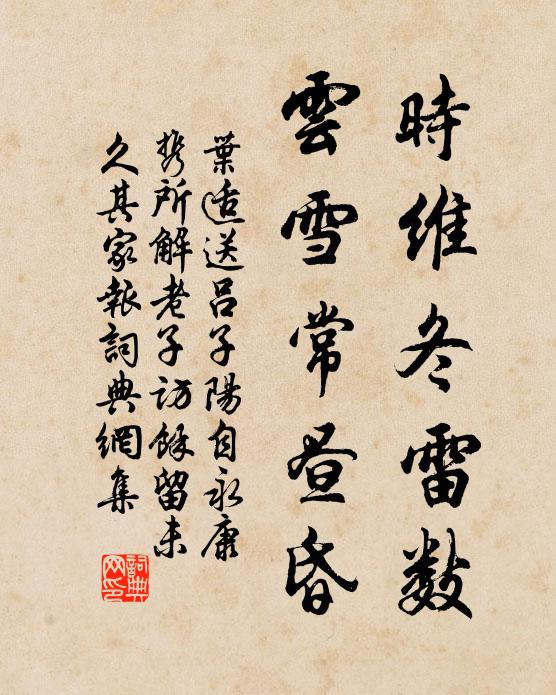 時維冬雷數
雲雪常昼昏
葉适送呂子陽自永康
携所解老子訪餘留未
久其家報詞典網集
詞典
网印